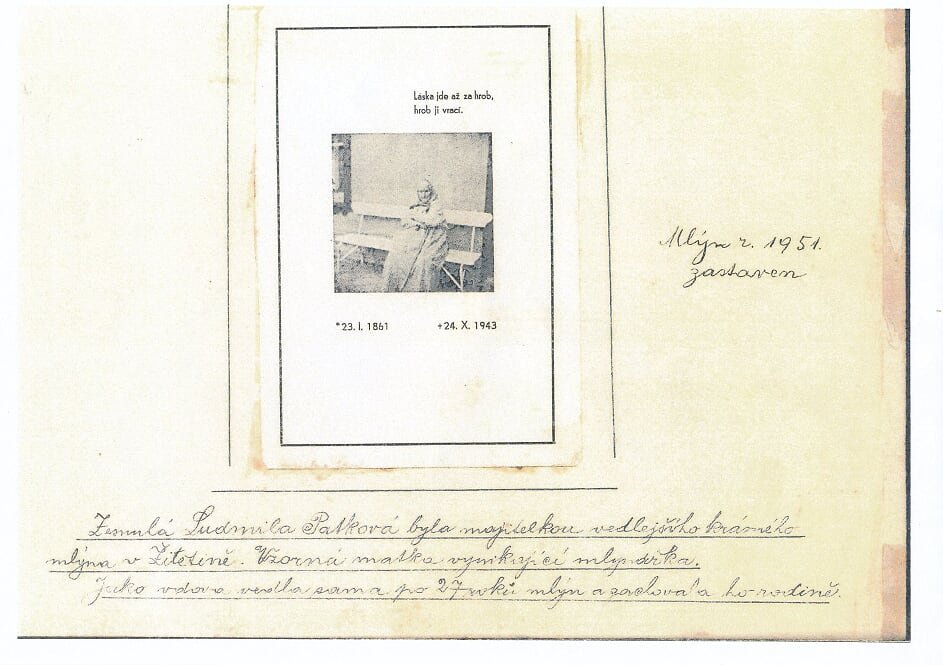 Láska jde až za hrob,
hrob ji vrací.
*23. I. 1861 +24. X. 1943
Mlýn r. 1951.
zastaven
Zesnulá Ludmila Patková byla majitelkou vedlejšího krásného
mlýna v Žitětíně. Vzorná matka vynikající mlynářka.
Jako vdova vedla sama po 27 roků mlýn a zachovala ho rodině.